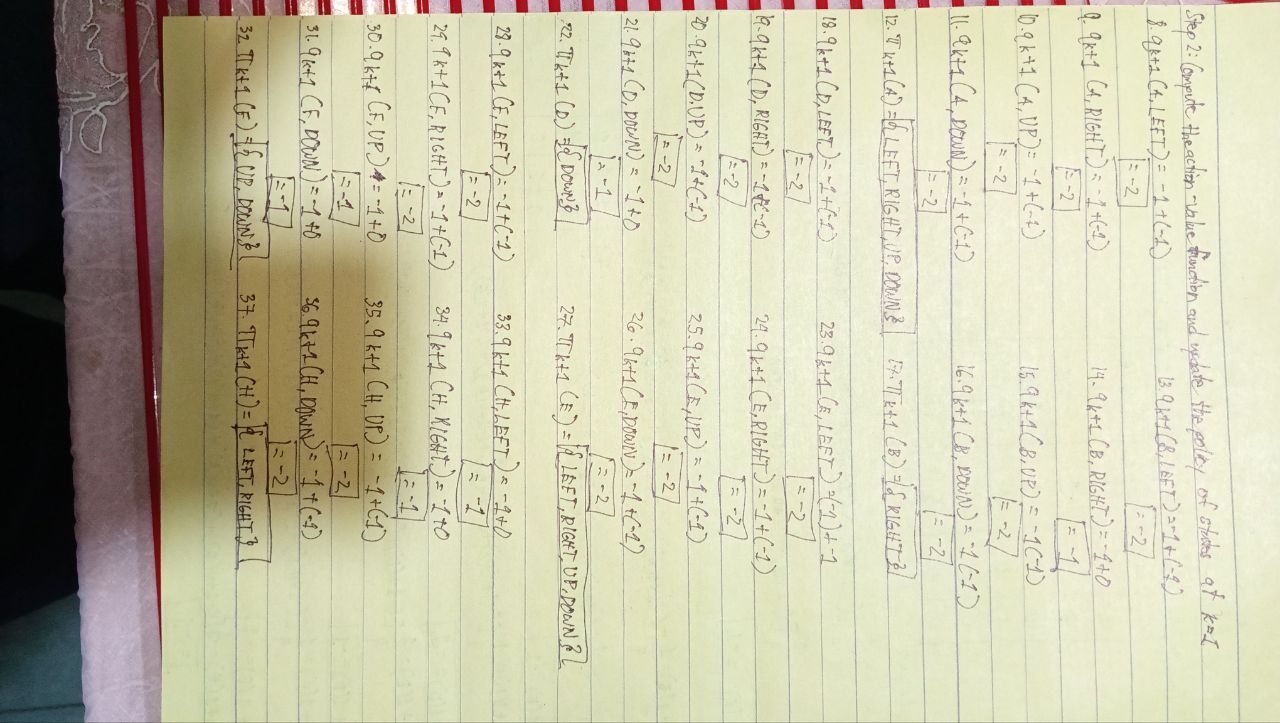 Step 2: Compute the action-value function and update the policy of states at k=1
8. qk+1(A, LEFT) = -1 + (-1)
= -2
9. qk+1 (A, RIGHT) = -1 + (-1)
= -2
10. qk+1 (A, UP) = -1 + (-1)
= -2
11. qk+1 (A, DOWN) = -1 + (-1)
= -2
12. πk+1(A) = {LEFT, RIGHT, UP, DOWN}
13. qk+1(B, LEFT) = -1 + (-1)
= -2
14. qk+1 (B, RIGHT) = -1+0
= -1
15. qk+1 (B, UP) = -1(-1)
= -2
16. qk+1 (B, DOWN) = -1(-1)
= -2
17. πk+1 (B) = {RIGHT}
18. qk+1 (D, LEFT) = -1 + (-1)
= -2
19. qk+1 (D, RIGHT) = -1 + (-1)
= -2
20. qk+1 (D, UP) = -1 + (-1)
= -2
21. qk+1 (D, DOWN) = -1+0
= -1
22. πk+1 (D) = {DOWN}
23. qk+1 (E, LEFT) = (-1) + -1
= -2
24. qk+1 (E, RIGHT) = -1 + (-1)
= -2
25. qk+1 (E, UP) = -1 + (-1)
= -2
26. qk+1 (E, DOWN) = -1 + (-1)
= -2
27. πk+1 (E) = {LEFT, RIGHT, UP, DOWN}
28. qk+1 (F, LEFT) = -1 + (-1)
= -2
29. qk+1 (F, RIGHT) = -1 + (-1)
= -2
30. qk+1 (F, UP) = -1+0
= -1
31. qk+1 (F, DOWN) = -1+0
= -1
32. πk+1 (F) = {UP, DOWN}
33. qk+1 (H, LEFT) = -1+0
= -1
34. qk+1 (H, RIGHT) = -1+0
= -1
35. qk+1 (H, UP) = -1 + (-1)
= -2
36. qk+1 (H, DOWN) = -1 + (-1)
= -2
37. πk+1 (H) = {LEFT, RIGHT}